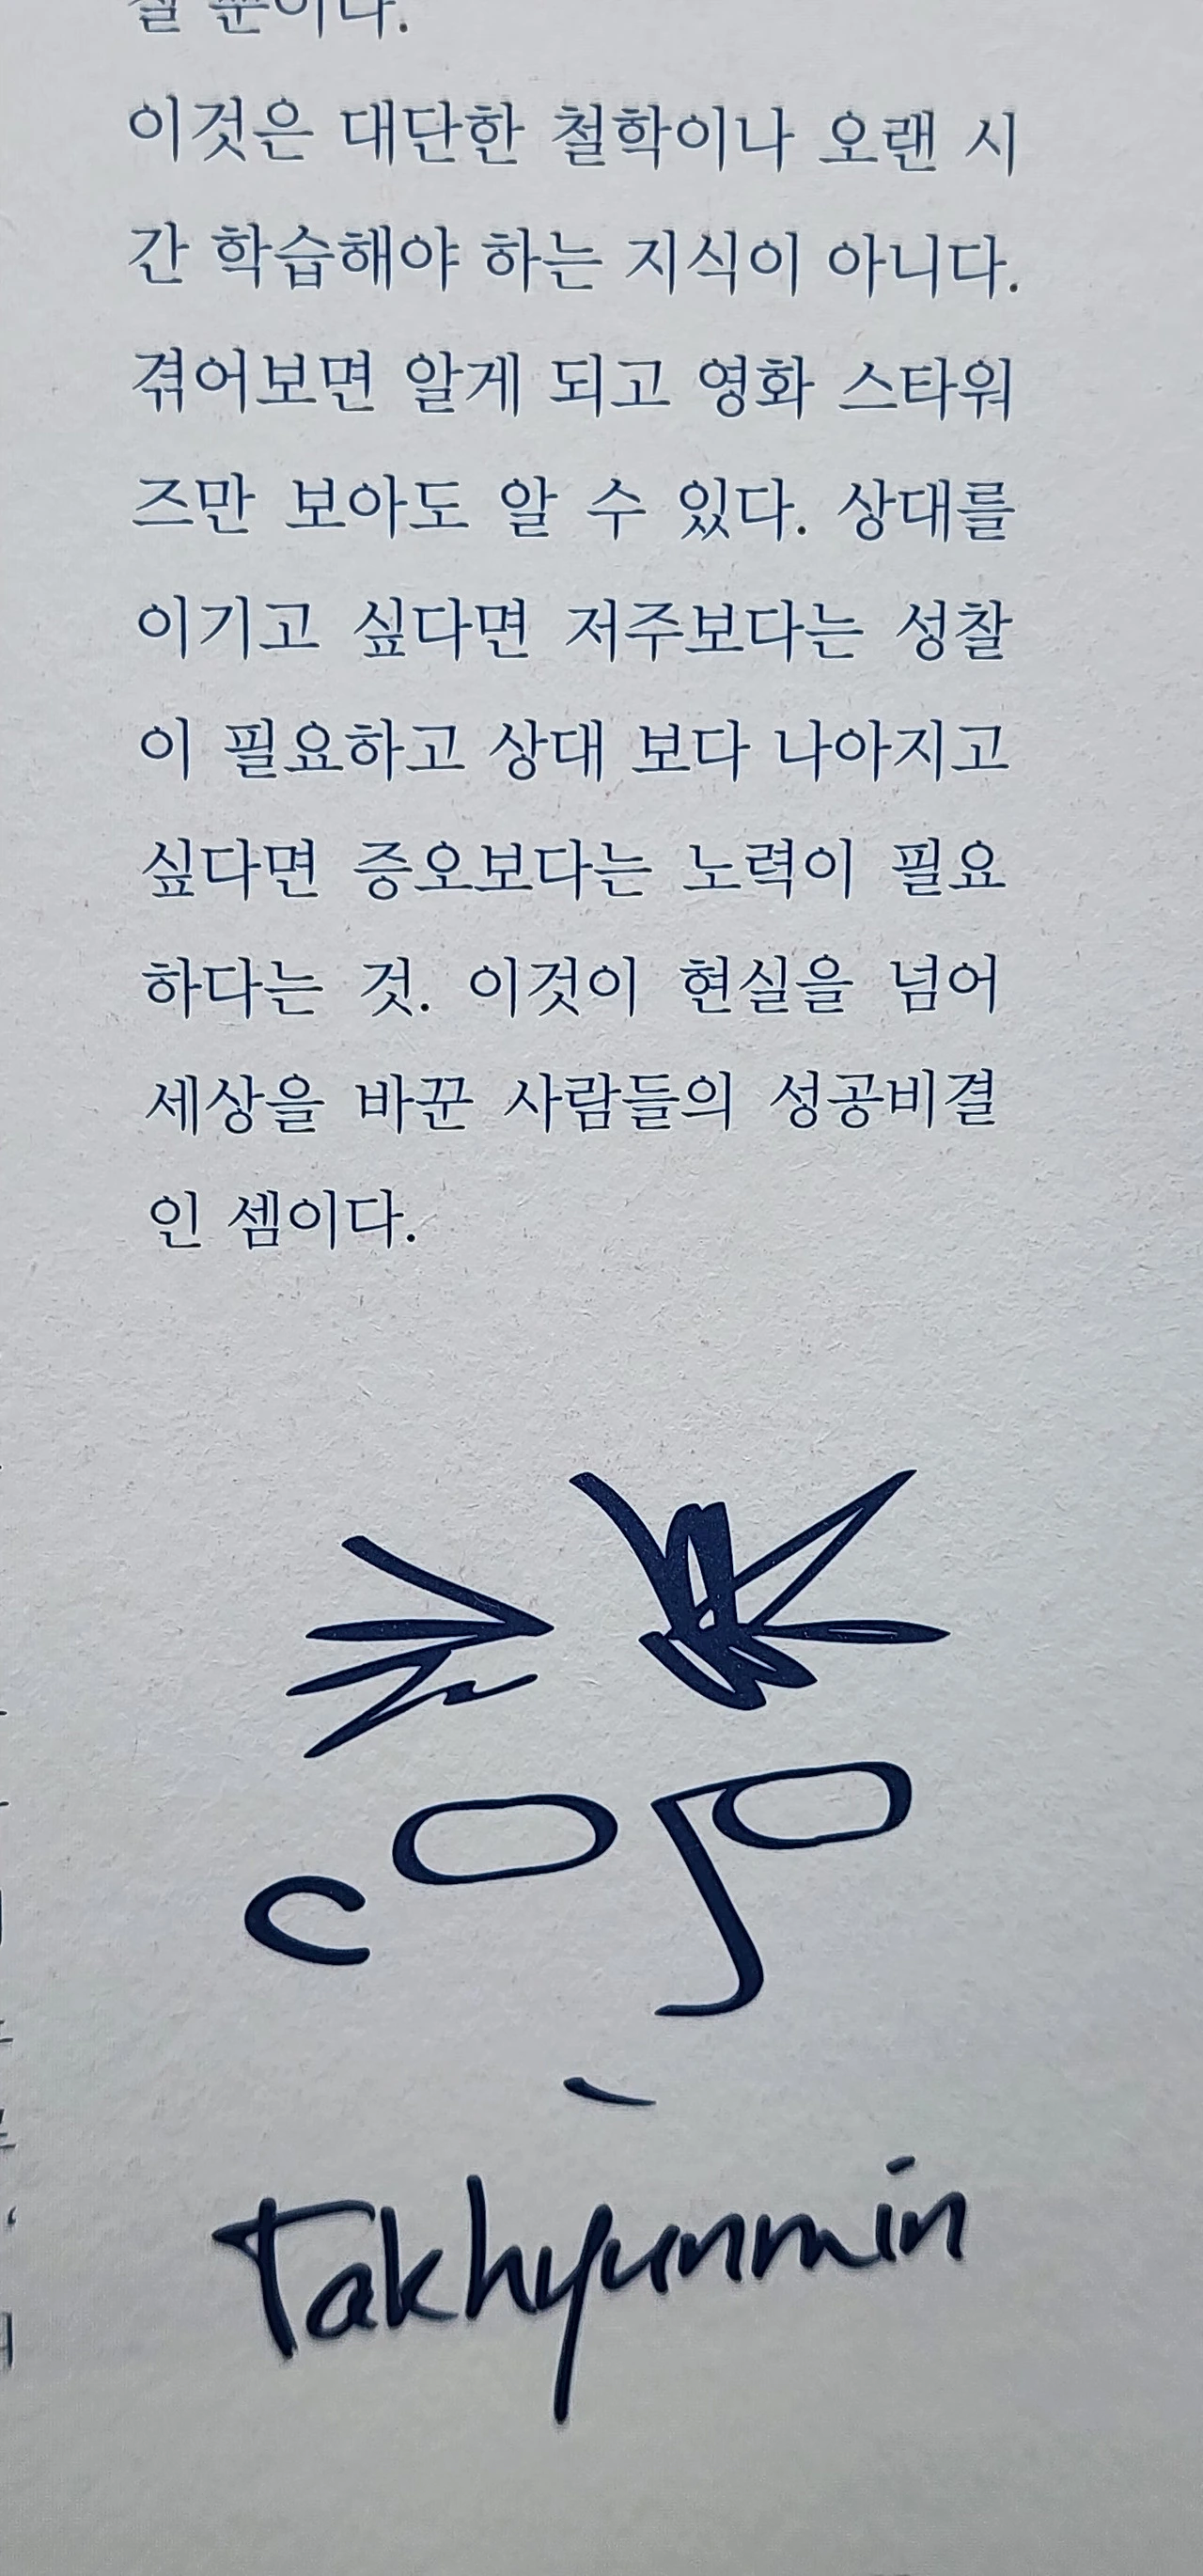 뿐이다.
이것은 대단한 철학이나 오랜 시
간 학습해야 하는 지식이 아니다.
겪어보면 알게 되고 영화 스타워
즈만 보아도 알 수 있다. 상대를
이기고 싶다면 저주보다는 성찰
이 필요하고 상대 보다 나아지고
싶다면 증오보다는 노력이 필요
하다는 것. 이것이 현실을 넘어
세상을 바꾼 사람들의 성공비결
인 셈이다.
Takhyunmin